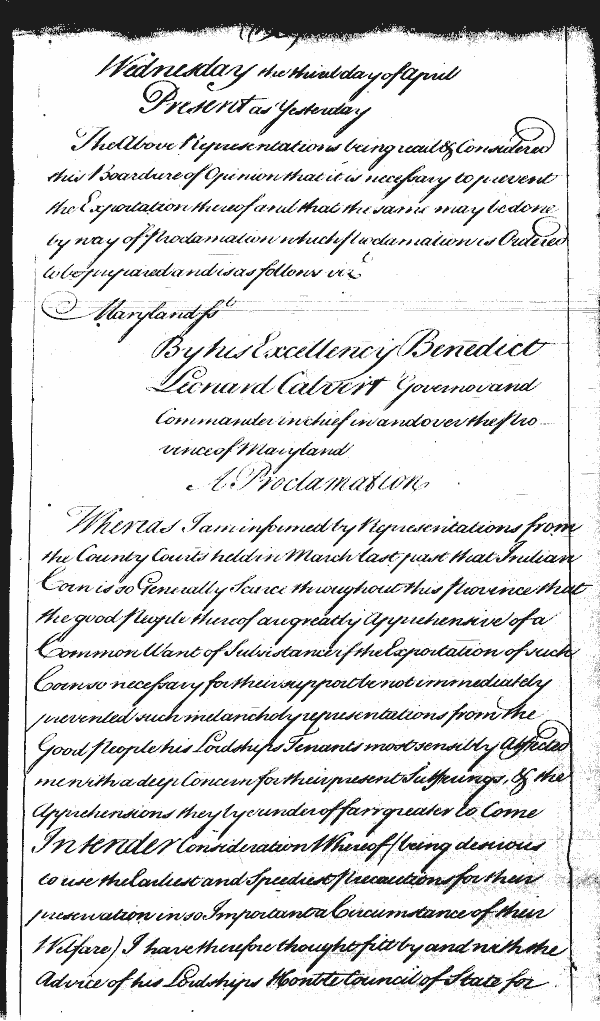 Wednesday the third day of April
Present as Yesterday
The Above Representations being read & Considered
this Board are of Opinion that it is necessary to prevent
the Exportation thereof and that the same may be done
by way of Proclamation which Proclamation is Ordered
to be prepared and is as follows vizt
Maryland sst
By his Excellency Benedict
Leonard Calvert Governor and
Commander in chief in and over the Pro
vince of Maryland
A Proclamation
Whereas I am informed by Representations from
the County Courts held in March last past that Indian
Corn is so Generally Scarce throughout this Province that
the good People thereof are greatly Apprehensive of a
Common Want of Subsistance if the Exportation of such
Corn so necessary for their support be not immediately
prevented such melancholy representations from the
Good People his Lordships Tenants most sensibly Affected
me with a deep Concern for their present Sufferings, & the
Apprehensions they lye under of farr greater to Come
In tender Consideration Whereof (being desirous
to use the Earliest and Speediest Precautions for their
preservation in so Important a Circumstance of their
Welfare) I have therefore thought fitt by and with the
Advice of his Lordships Honble Council of State for